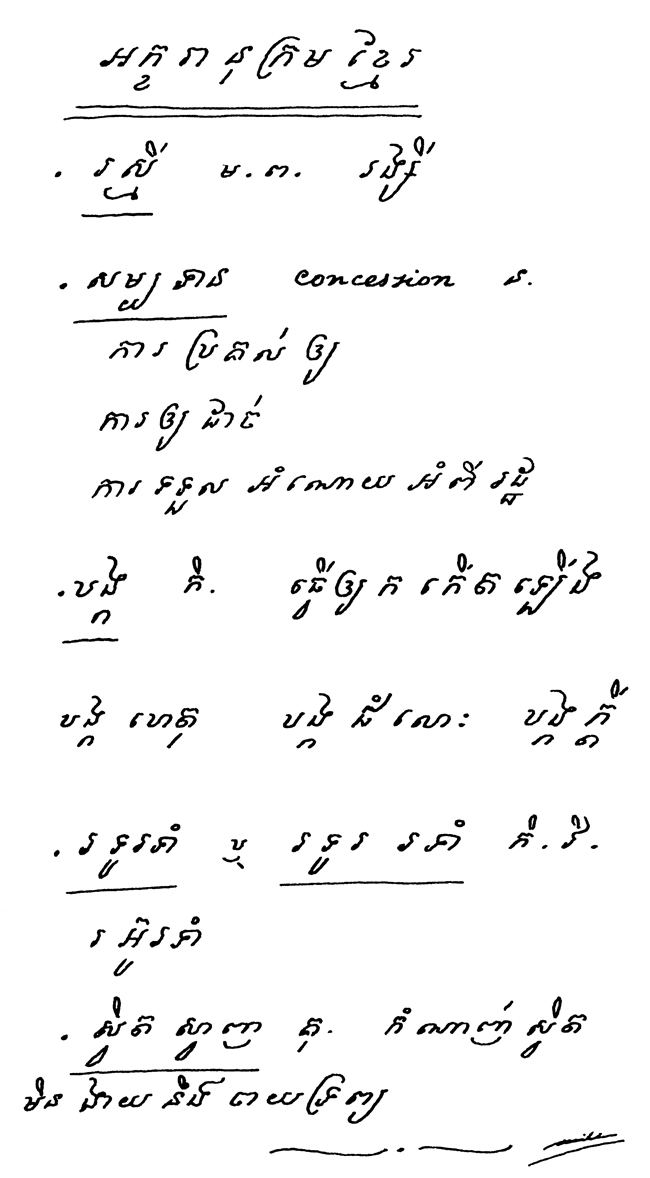 អក្ខរានុក្រមខ្មែរ
. រស្មី ម.ព. រង្ស៊ី
. សម្បទាន concession ន.
ការប្រគល់ឲ្យ
ការឲ្យដាច់
ការទទួលអំណោយអំពីរដ្ឋ
. បង្ក កិ. ធ្វើឲ្យក កើតឡើង
បង្កហេតុ បង្កជំលោះ បង្កក្ដី
. រទូរទាំ ឬ រទូររទាំ កិ.វិ.
រអ៊ូរទាំ
. ស្វិតស្វាញ គុ. កំណាញ់ស្វិត
មិនងាយនឹងចាយទ្រព្យ